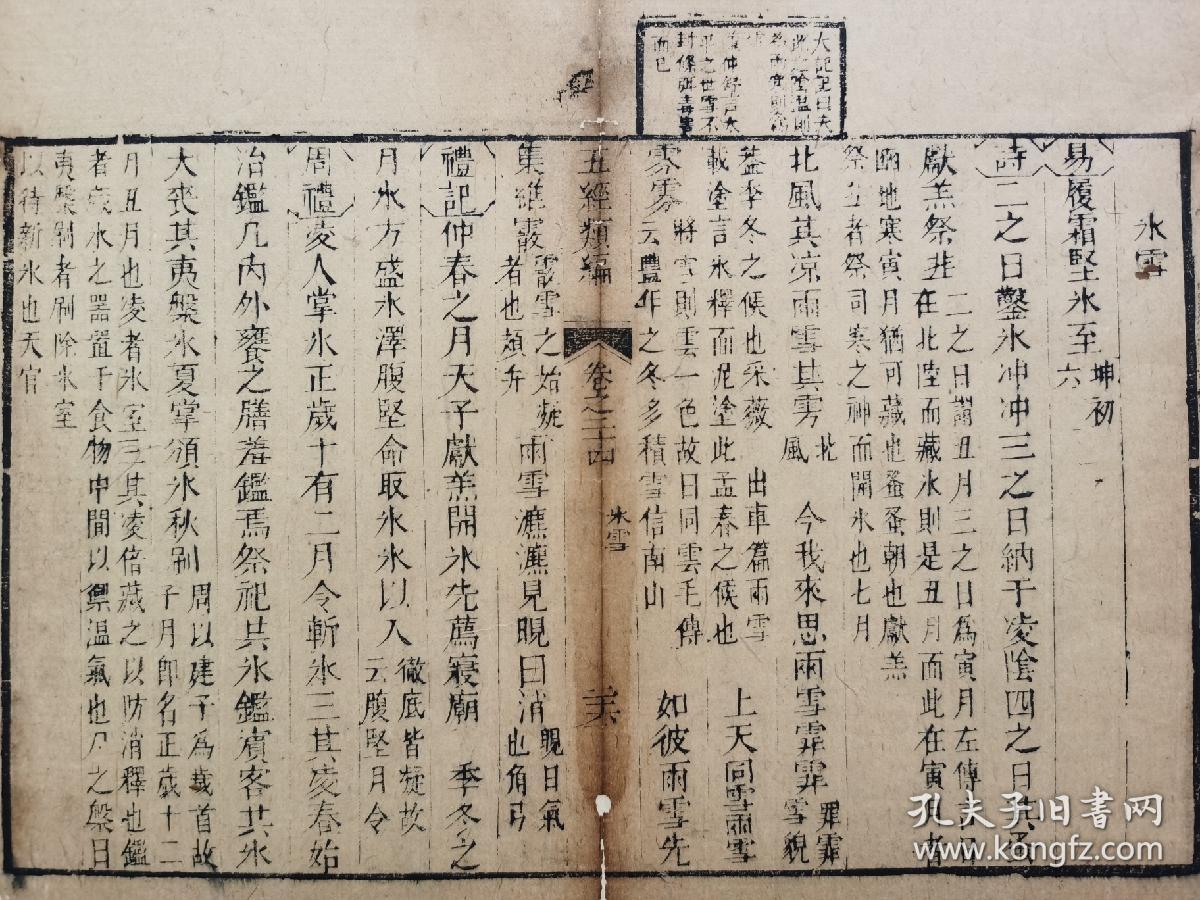 冰雪
易履霜堅氷至坤初六
詩二之日鑿氷冲冲三之日納于凌陰四之日其蚤
獻羔祭韭二之日謂丑月三之日為寅月左傳言日
在北陸而藏氷則是丑月而此在寅月者
豳地寒寅月猶可藏也蚤蚤朝也獻羔
祭韭者祭司寒之神而開氷也七月
北風其凉雨雪其雱北風 今我來思雨雪霏霏霏霏雪貌
蓋季冬之候也采薇 出車篇雨雪
載塗言氷釋而泥塗此孟春之候也 上天同雲雨雪
雰雰將雪則雲一色故曰同雲毛傳
云豐年之冬多積雪信南山 如彼雨雪先
五經類編 卷之二十四 氷雪
集維霰霰雪之始凝者也頍弁 雨雪瀌瀌見晛曰消晛日氣也角弓
禮記仲春之月天子獻羔開氷先薦寢廟 季冬之
月氷方盛水澤腹堅命取氷氷以入徹底皆凝故云腹堅月令
周禮凌人掌氷正歲十有二月令斬氷三其凌春始
治鑑凡內外饔之膳羞鑑焉祭祀共氷鑑賓客共氷
大喪共夷槃氷夏掌頒氷秋刷周以建子為歲首故
子月即名正歲十二
月丑月也凌者氷室三其凌倍藏之以防消釋也鑑
者盛氷之器置于食物中間以禦温氣也尸之槃曰
夷槃刷者刷除氷室
以待新氷也天官
孔夫子旧书网
www.kongfz.com